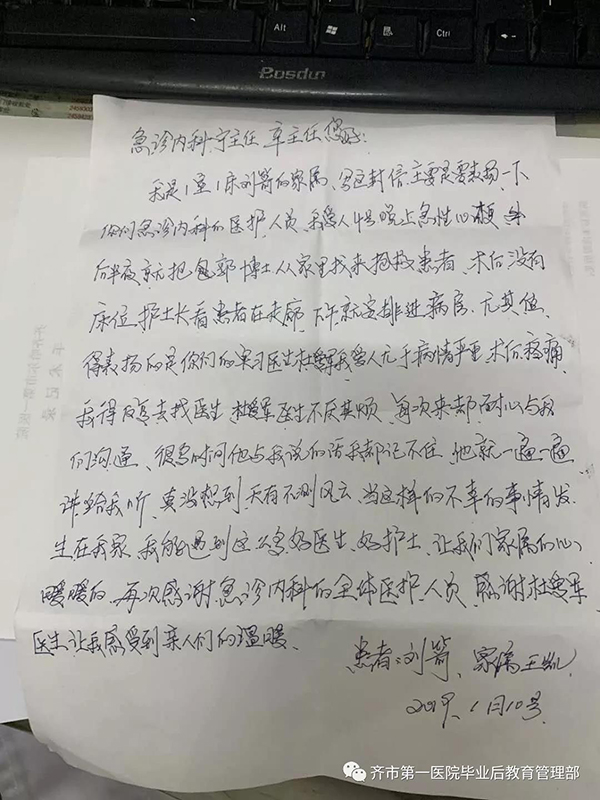 Alt
Fn
Ctrl
急诊内科宁主任 车主任您好:
我是1室1床刘箭的家属,写这封信主要是要表扬一下
你们急诊内科的医护人员,我爱人4号晚上急性心梗
后半夜就把包郭博士从家里找来抢救患者,术后没有
床位,护士长看患者在走廊,下午就安排进病房,尤其值
得表扬的是你们的实习医生杜 军我爱人尤于病情严重,术后疼痛
我得反复去找医生,杜 军医生不厌其烦,每次来都耐心与我
们沟通,很多时间他与我说的话我都记不住,他就一遍一遍
讲给我听,真没想到,天有不测风云,当这样的不幸的事情发
生在我家,我能遇到这么多好医生,好护士,让我们家属的心
暖暖的,再次感谢急诊内科的全体医护人员,感谢杜 军
医生让我感受到亲人们的温暖.
患者:刘箭、家属王凯
2019、1月10号
齐市第一医院毕业后教育管理部